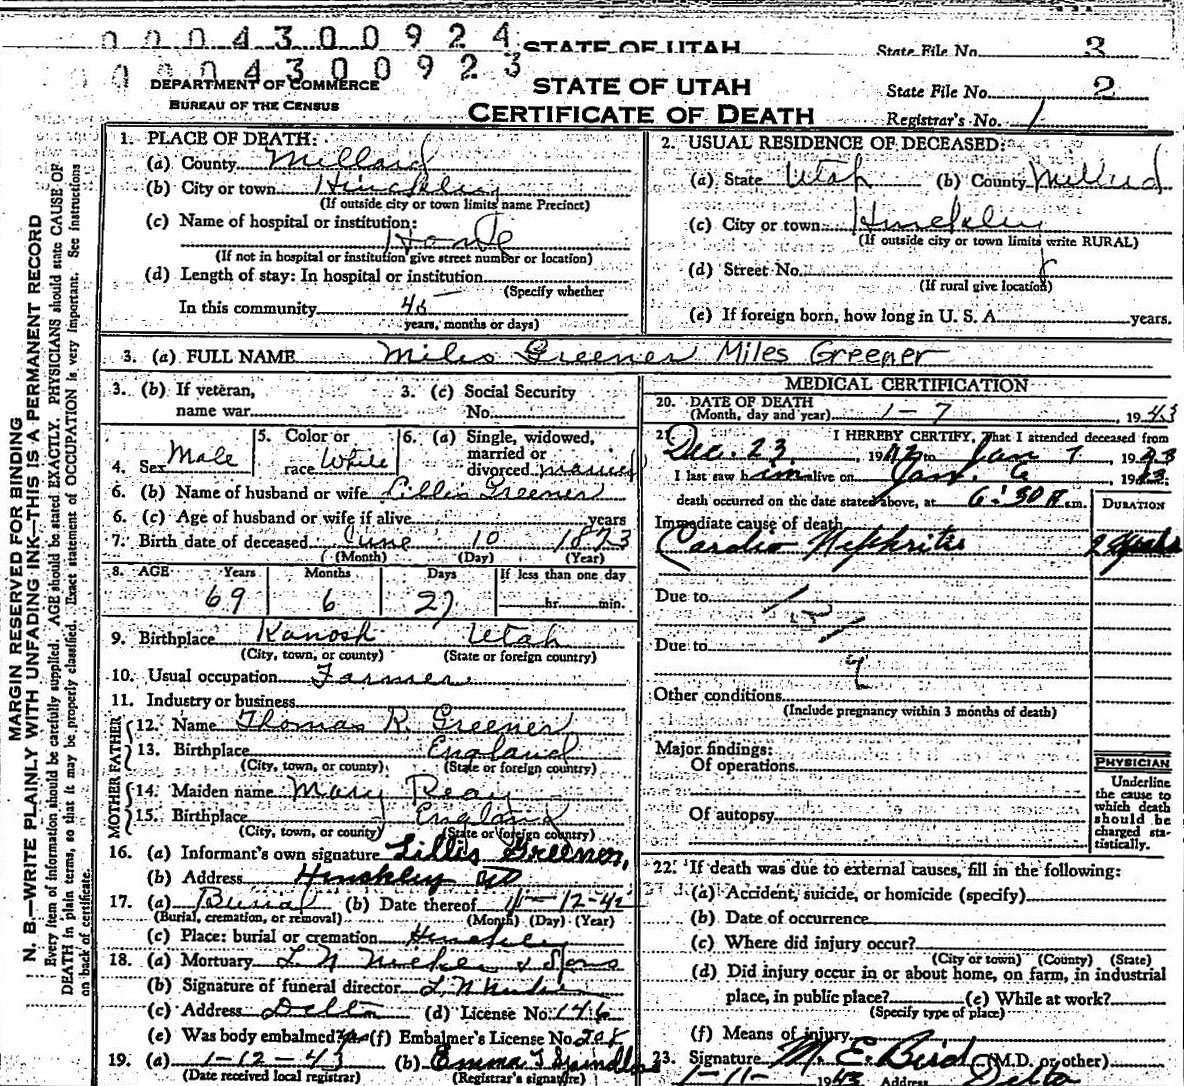 0 0 0 4 3 0 0 9 2 4 STATE OF UTAH State File No. 3
0 0 0 4 3 0 0 9 2 3
DEPARTMENT OF COMMERCE
BUREAU OF THE CENSUS
STATE OF UTAH
CERTIFICATE OF DEATH
State File No. 2
Registrar's No. 1
MARGIN RESERVED FOR BINDING
N. B.—WRITE PLAINLY WITH UNFADING INK—THIS IS A PERMANENT RECORD
Every item of information should be carefully supplied. AGE should be stated EXACTLY. PHYSICIANS should state CAUSE OF
DEATH in plain terms, so that it may be properly classified. Exact statement of OCCUPATION is very important. See instructions
on back of certificate.
1. PLACE OF DEATH:
(a) County Millard
(b) City or town Hinckley
(If outside city or town limits name Precinct)
(c) Name of hospital or institution:
Home
(If not in hospital or institution give street number or location)
(d) Length of stay: In hospital or institution
(Specify whether
In this community 46 —
years, months or days)
2. USUAL RESIDENCE OF DECEASED:
(a) State Utah (b) County Millard
(c) City or town Hinckley
(If outside city or town limits write RURAL)
(d) Street No.
(If rural give location)
(e) If foreign born, how long in U. S. A. years.
3. (a) FULL NAME Miles Greener Miles Greener
3. (b) If veteran,
name war
3. (c) Social Security
No.
4. Sex Male
5. Color or
race White
6. (a) Single, widowed,
married or
divorced married
6. (b) Name of husband or wife Lillis Greener
6. (c) Age of husband or wife if alive years
7. Birth date of deceased June 10 1873
(Month) (Day) (Year)
8. AGE Years Months Days If less than one day
69 6 27 hr. min.
9. Birthplace Kanosh Utah
(City, town, or county) (State or foreign country)
10. Usual occupation Farmer
11. Industry or business
FATHER
12. Name Thomas R. Greener
13. Birthplace England
(City, town, or county) (State or foreign country)
MOTHER
14. Maiden name Mary Reay
15. Birthplace England
(City, town, or county) (State or foreign country)
16. (a) Informant's own signature Lillis Greener,
(b) Address Hinckley Ut
17. (a) Burial (b) Date thereof 12-42
(Burial, cremation, or removal) (Month) (Day) (Year)
(c) Place: burial or cremation Hinckley
18. (a) Mortuary L. N. & Sons
(b) Signature of funeral director L. N.
(c) Address Delta (d) License No. 146
(e) Was body embalmed? yes (f) Embalmer's License No. 208
19. (a) 1-12-43 (b) Emma
(Date received local registrar) (Registrar's signature)
MEDICAL CERTIFICATION
20. DATE OF DEATH
(Month, day and year) 1-7 1943
21. I HEREBY CERTIFY, That I attended deceased from
Dec. 23, 1942 to Jan 7, 1943
I last saw him alive on Jan. 6, 1943;
death occurred on the date stated above, at 6:30 A m.
DURATION
Immediate cause of death
Cardio Nephritis 2
Due to
Due to
Other conditions
(Include pregnancy within 3 months of death)
Major findings:
Of operations
Of autopsy
PHYSICIAN
Underline
the cause to
which death
should be
charged sta-
tistically.
22. If death was due to external causes, fill in the following:
(a) Accident, suicide, or homicide (specify)
(b) Date of occurrence
(c) Where did injury occur?
(City or town) (County) (State)
(d) Did injury occur in or about home, on farm, in industrial
place, in public place? (e) While at work?
(Specify type of place)
(f) Means of injury
23. Signature M. E. Bird (M.D. or other)
1-11- 1943 Address Delta